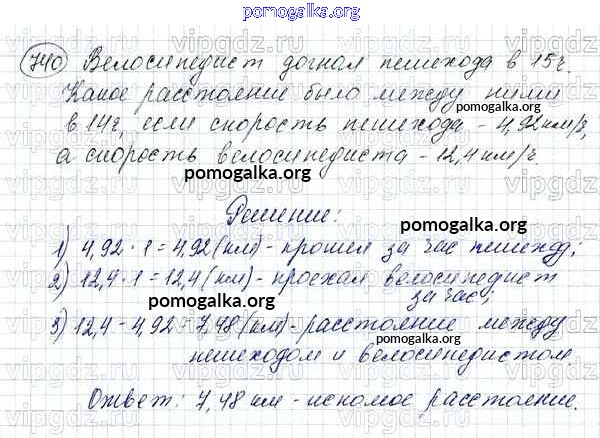 pomogalka.org
740 Велосипедист догнал пешехода в 15ч.
Какое расстояние было между ними
pomogalka.org
в 14ч, если скорость пешехода - 4,92 км/ч,
а скорость велосипедиста - 12,4 км/ч.
pomogalka.org
Решение:
pomogalka.org
1) 4,92 · 1 = 4,92 (км) - прошел за час пешеход;
2) 12,4 · 1 = 12,4 (км) - проехал велосипедист
за час;
pomogalka.org
3) 12,4 - 4,92 = 7,48 (км) - расстояние между
пешеходом и велосипедистом
pomogalka.org
Ответ: 7,48 км - искомое расстояние.